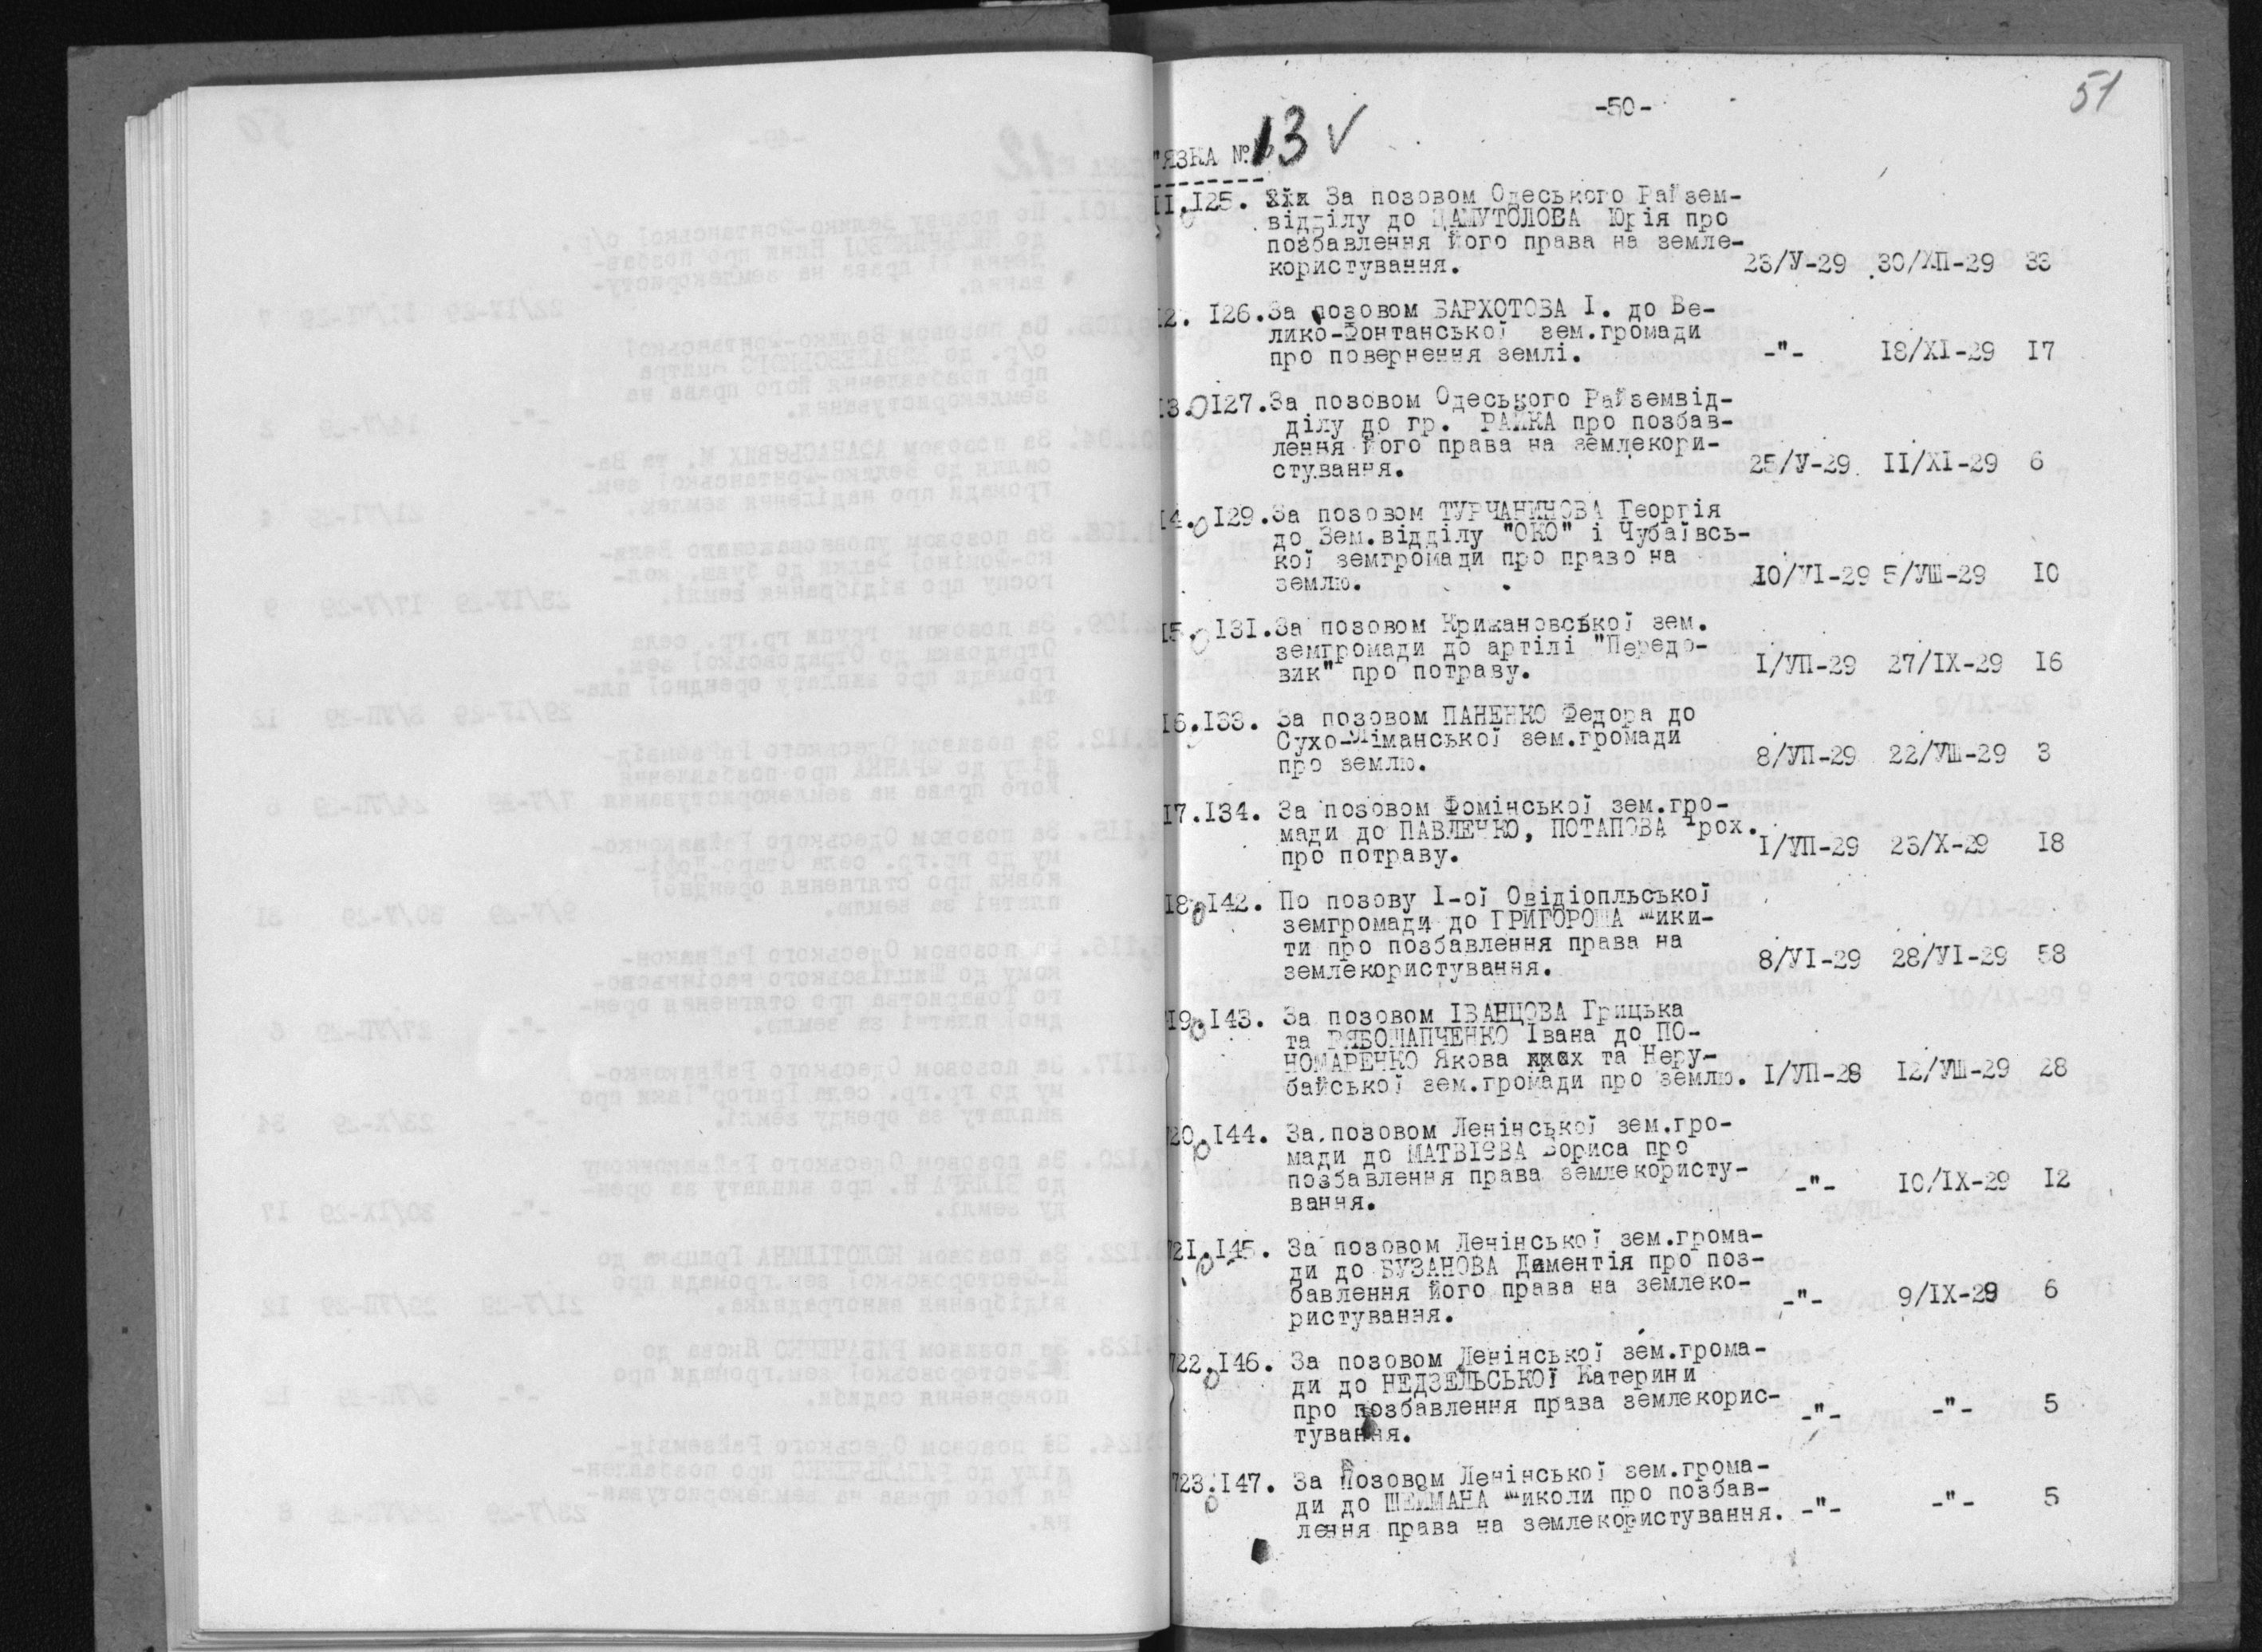 51
-50-
"ЯЗКА №13 V
11.125. За позовом Одеського Райзем-
відділу до ЦАМУТОЛОВА Юрія про
позбавлення його права на земле-
користування. 23/У-29 30/ХП-29 33
12. 126. За позовом БАРХОТОВА І. до Ве-
лико-Фонтанської зем.громади
про повернення землі. -"- 18/ХІ-29 17
13. 127. За позовом Одеського Райземвід-
ділу до гр. РАЙКА про позбав-
лення його права на землекори-
стування. 25/У-29 11/ХІ-29 6
14. 129. За позовом ТУРЧАНИНОВА Георгія
до Зем.відділу "ОКО" і Чубаївсь-
кої земгромади про право на
землю. 10/УІ-29 5/УШ-29 10
15. 131. За позовом Крижановської зем.
земгромади до артілі "Передо-
вик" про потраву. 1/УП-29 27/ІХ-29 16
16. 133. За позовом ПАНЕНКО Федора до
Сухо-Ліманської зем.громади
про землю. 8/УП-29 22/УШ-29 3
17. 134. За позовом Фомінської зем.гро-
мади до ПАВЛЕНКО, ПОТАПОВА Трох.
про потраву. 1/УП-29 23/Х-29 18
18. 142. По позову 1-ої Овідіопльської
земгромади до ГРИГОРОША Мики-
ти про позбавлення права на
землекористування. 8/УІ-29 28/УІ-29 58
19. 143. За позовом ІВАНЦОВА Грицька
та РЯБОШАПЧЕНКО Івана до ПО-
НОМАРЕНКО Якова та Неру-
байської зем.громади про землю. 1/УП-29 12/УШ-29 28
20. 144. За позовом Ленінської зем.гро-
мади до МАТВІЄВА Бориса про
позбавлення права землекористу-
вання. -"- 10/ІХ-29 12
721. 145. За позовом Ленінської зем.грома-
ди до БУЗАНОВА Дементія про поз-
бавлення його права на землеко-
ристування. -"- 9/ІХ-29 6
722. 146. За позовом Ленінської зем.грома-
ди до НЕДЗЕЛЬСЬКОЇ Катерини
про позбавлення права землекорис-
тування. -"- -"- 5
723. 147. За позовом Ленінської зем.грома-
ди до ШЕЙМАНА Миколи про позбав-
лення права на землекористування. -"- -"- 5